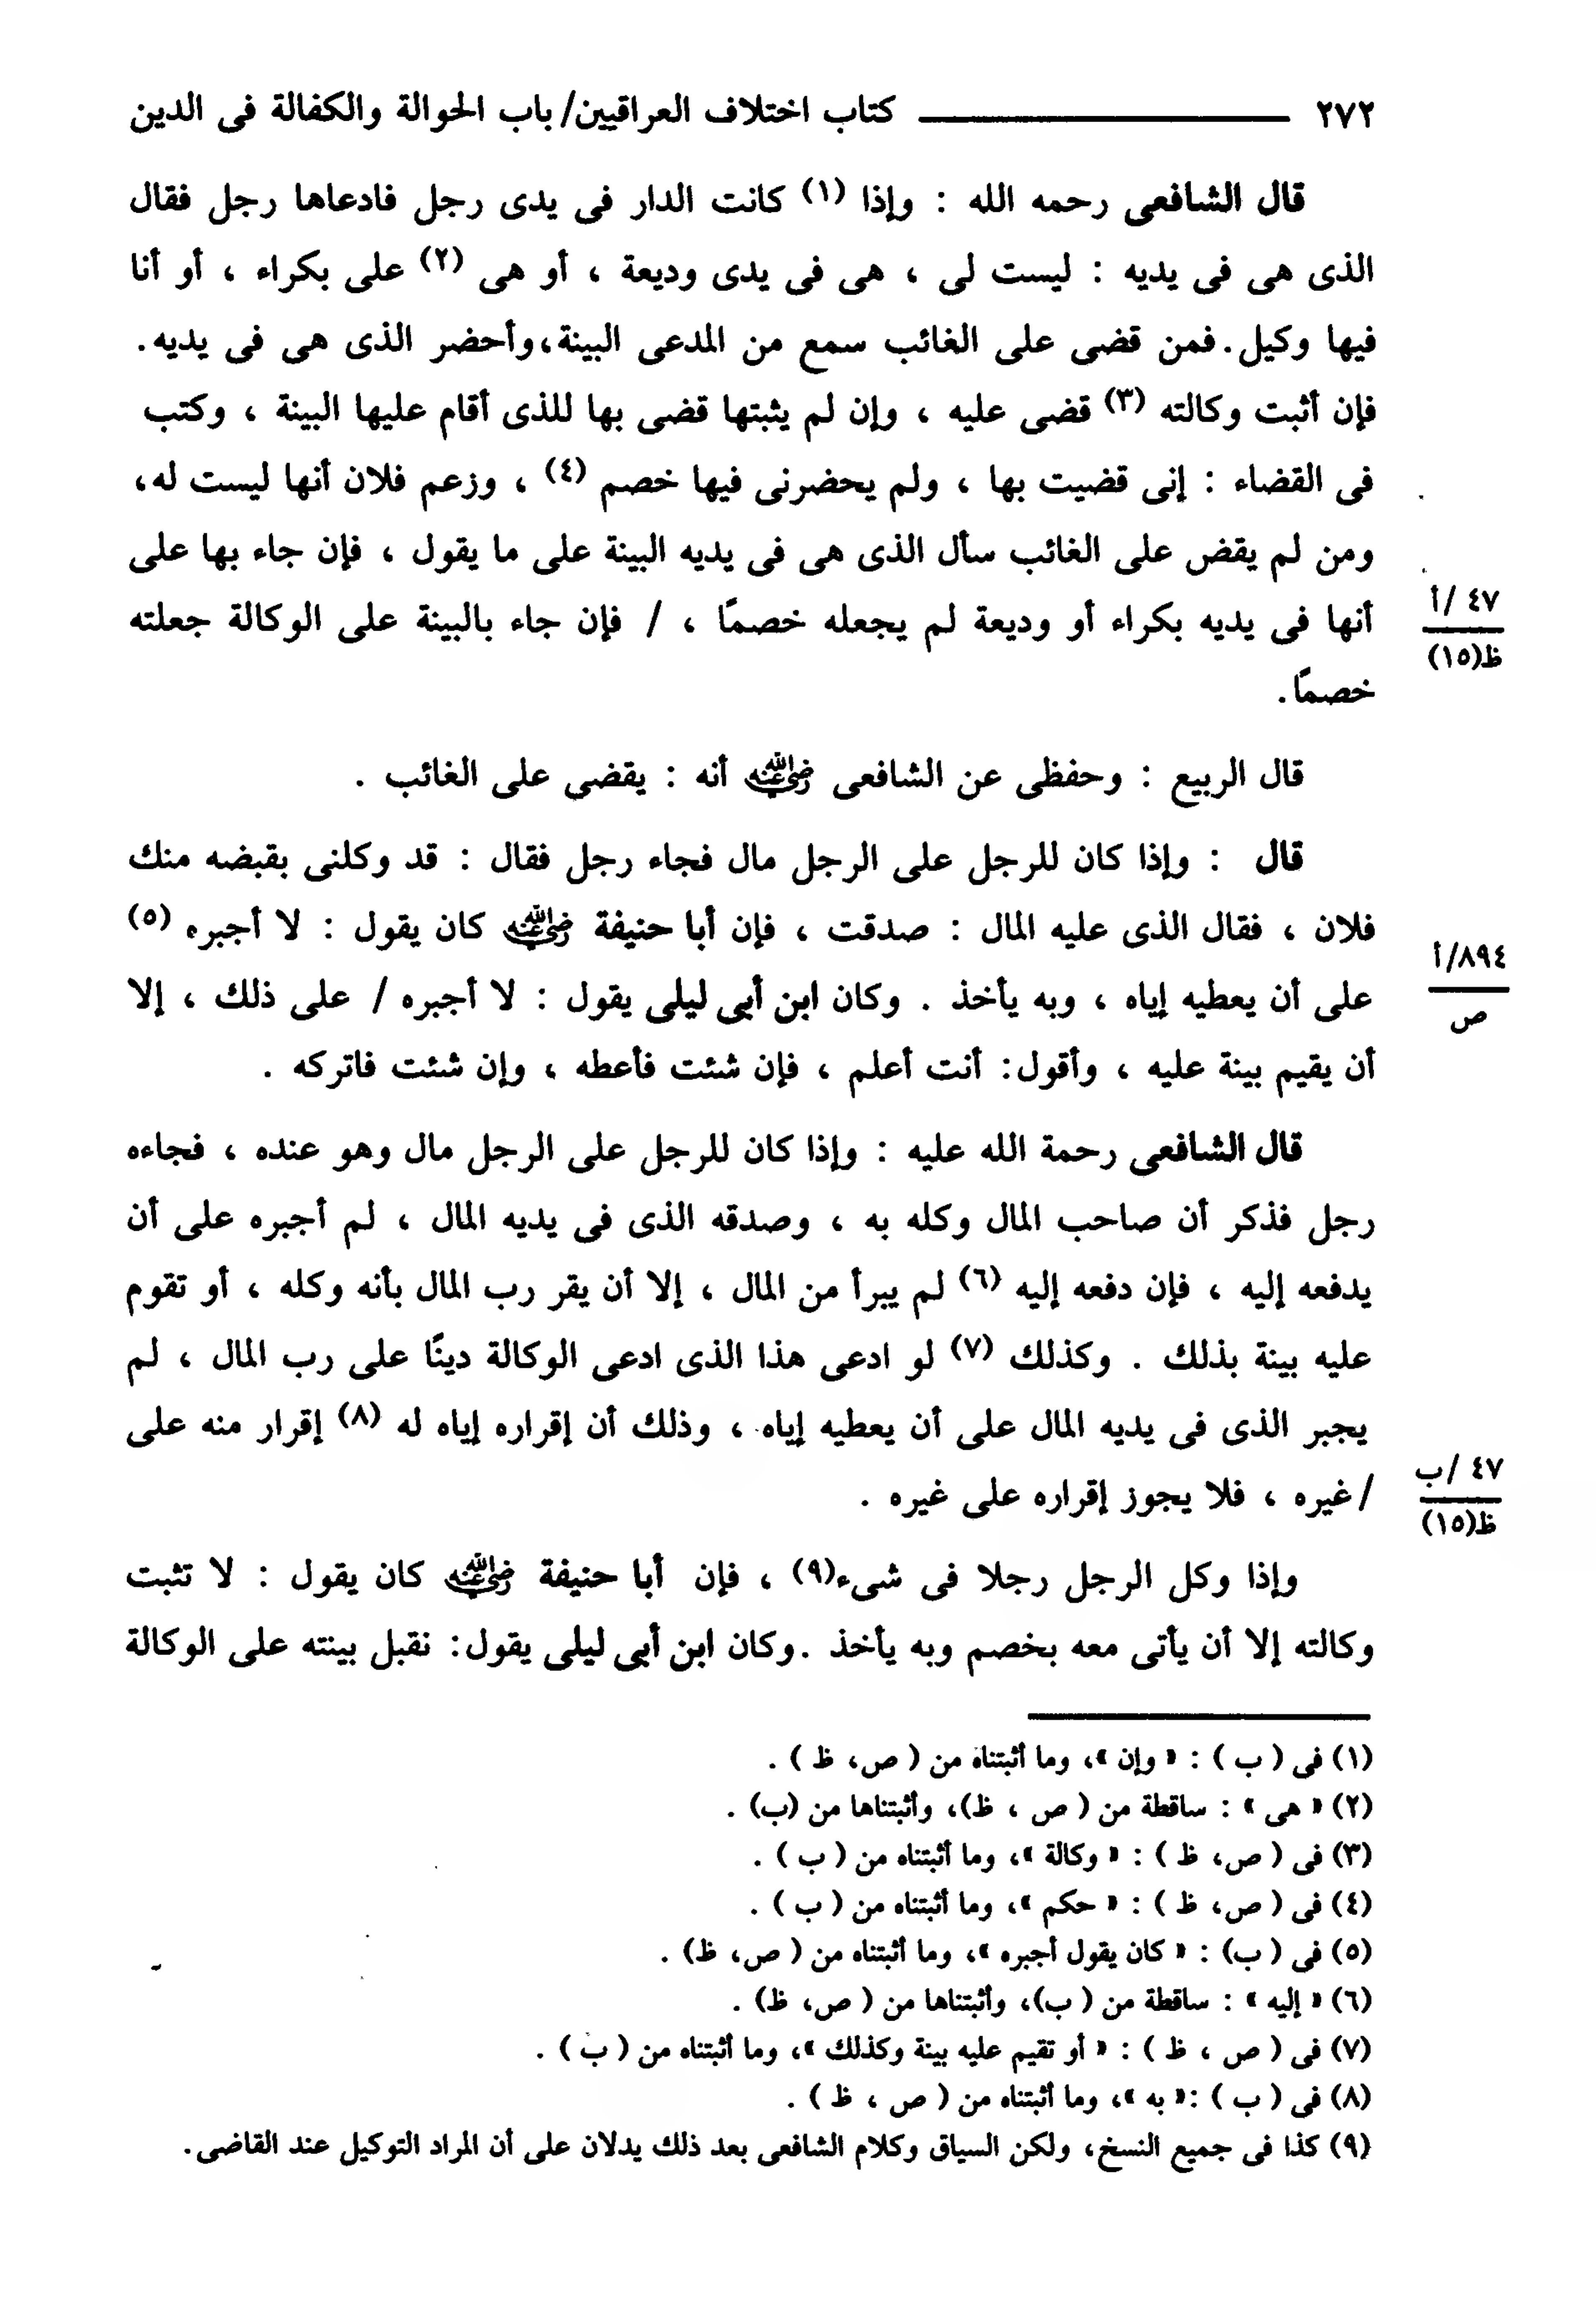 ٢٧٢ ــــــــــــــــ كتاب اختلاف العراقيين/ باب الحوالة والكفالة فى الدين
قال الشافعى رحمه الله : وإذا (١) كانت الدار فى يدى رجل فادعاها رجل فقال
الذى هى فى يديه : ليست لى ، هى فى يدى وديعة ، أو هى (٢) على بكراء ، أو أنا
فيها وكيل. فمن قضى على الغائب سمع من المدعى البينة،وأحضر الذى هى فى يديه.
فإن أثبت وكالته (٣) قضى عليه ، وإن لم يثبتها قضى بها للذى أقام عليها البينة ، وكتب
فى القضاء : إنى قضيت بها ، ولم يحضرنى فيها خصم (٤) ، وزعم فلان أنها ليست له،
ومن لم يقض على الغائب سأل الذى هى فى يديه البينة على ما يقول ، فإن جاء بها على
٤٧ /أ
ظ(١٥)
أنها فى يديه بكراء أو وديعة لم يجعله خصمًا ، / فإن جاء بالبينة على الوكالة جعلته
خصمًا.
قال الربيع : وحفظى عن الشافعى رضي الله عنه أنه : يقضى على الغائب .
قال : وإذا كان للرجل على الرجل مال فجاء رجل فقال : قد وكلنى بقبضه منك
فلان ، فقال الذى عليه المال : صدقت ، فإن أبا حنيفة رضي الله عنه كان يقول : لا أجبره (٥)
٨٩٤/أ
ص
على أن يعطيه إياه ، وبه يأخذ . وكان ابن أبى ليلى يقول : لا أجبره / على ذلك ، إلا
أن يقيم بينة عليه ، وأقول: أنت أعلم ، فإن شئت فأعطه ، وإن شئت فاتركه .
قال الشافعى رحمة الله عليه : وإذا كان للرجل على الرجل مال وهو عنده ، فجاءه
رجل فذكر أن صاحب المال وكله به ، وصدقه الذى فى يديه المال ، لم أجبره على أن
يدفعه إليه ، فإن دفعه إليه (٦) لم يبرأ من المال ، إلا أن يقر رب المال بأنه وكله ، أو تقوم
عليه بينة بذلك . وكذلك (٧) لو ادعى هذا الذى ادعى الوكالة دينًا على رب المال ، لم
يجبر الذى فى يديه المال على أن يعطيه إياه ، وذلك أن إقراره إياه له (٨) إقرار منه على
٤٧ /ب
ظ(١٥)
/ غيره ، فلا يجوز إقراره على غيره .
وإذا وكل الرجل رجلا فى شىء(٩) ، فإن أبا حنيفة رضي الله عنه كان يقول : لا تثبت
وكالته إلا أن يأتى معه بخصم وبه يأخذ .وكان ابن أبى ليلى يقول: نقبل بينته على الوكالة
(١) فى ( ب ) : « وإن »، وما أثبتناه من ( ص، ظ ) .
(٢) « هى » : ساقطة من ( ص ، ظ)، وأثبتناها من (ب) .
(٣) فى ( ص، ظ ) : « وكالة »، وما أثبتناه من ( ب ) .
(٤) فى ( ص، ظ ) : « حكم »، وما أثبتناه من ( ب ) .
(٥) فى ( ب) : « كان يقول أجبره »، وما أثبتناه من ( ص، ظ) .
(٦) « إليه » : ساقطة من ( ب)، وأثبتناها من ( ص، ظ) .
(٧) فى ( ص ، ظ ) : « أو تقيم عليه بينة وكذلك »، وما أثبتناه من ( ب ) .
(٨) فى ( ب ) :« به »، وما أثبتناه من ( ص ، ظ ) .
(٩) كذا فى جميع النسخ، ولكن السياق وكلام الشافعى بعد ذلك يدلان على أن المراد التوكيل عند القاضى.